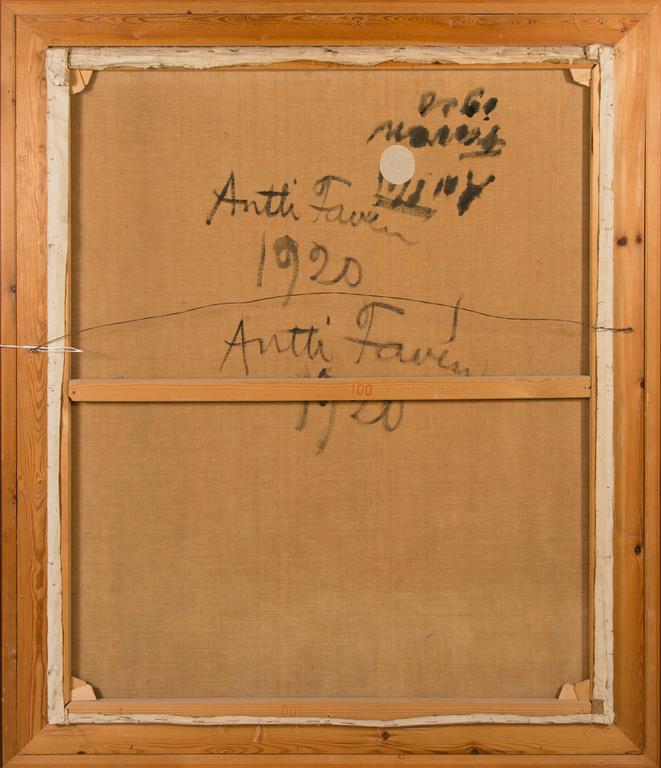 Antti Favén
1920
Antti Favén
100
1920
100